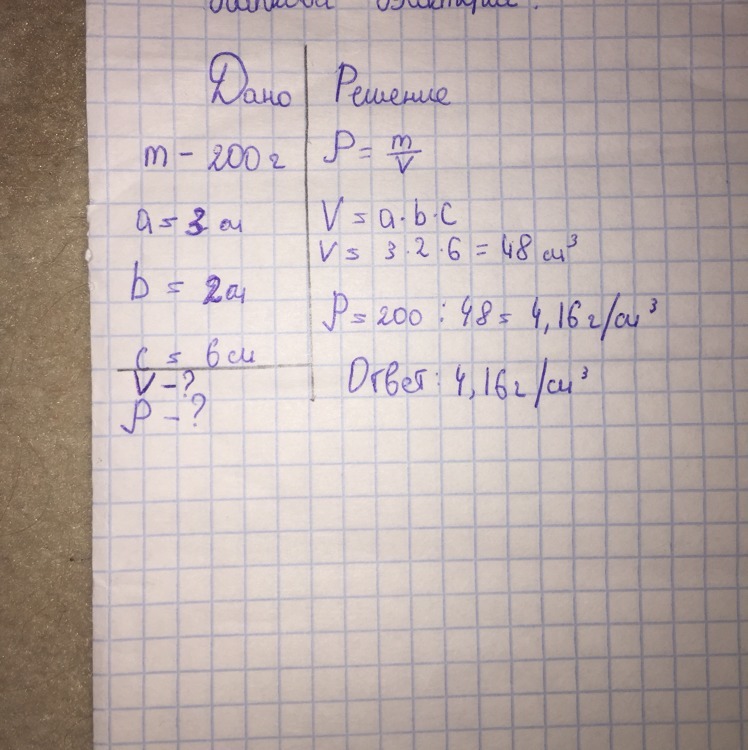 Дано
m - 200 г
a = 3 см
b = 2 см
c = 6 см
V - ?
ρ - ?
Решение
ρ = m/V
V = a · b · c
V = 3 · 2 · 6 = 48 см³
ρ = 200 : 48 = 4,16 г/см³
Ответ: 4,16 г/см³